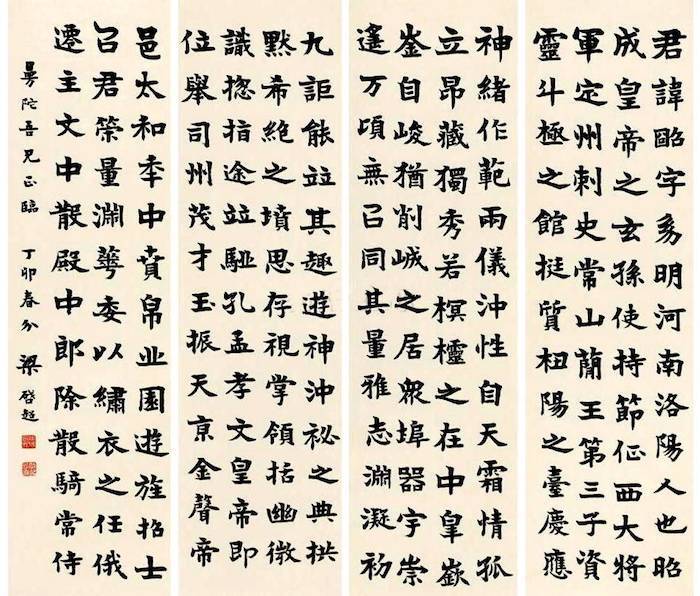 君諱昭字幼明河南洛陽人也昭
成皇帝之玄孫使持節征西大將
軍定州刺史常山蕳王第三子資
靈斗極之館挺質杻陽之臺慶應
神緒作範兩儀沖性自天霜情孤
立昂藏獨秀若榠櫺之在中皐嶽
崟自峻猶削峸之居衆埠器宇崇
遙万頃無㠯同其量雅志淵凝初
九詎能竝其趣遊神沖祕之典拱
默希絶之墳思存視掌領括幽微
識揔指途竝駈孔孟孝文皇帝即
位舉司州茂才玉振天京金聲帝
邑太和年中賁帛丘園遊旌招士
召君榮量淵蕚委以繡衣之任俄
遷主文中散殿中郎除散騎常侍
曼陀吾兄正臨 丁卯春分 梁啓超